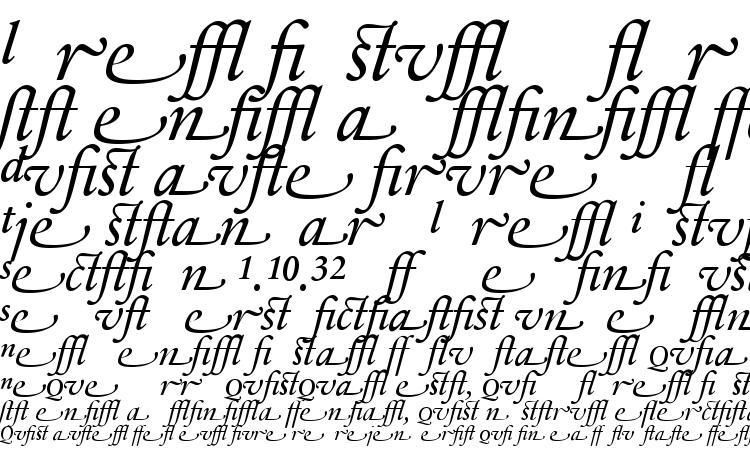 l re ffl fi stvffl fl r
ſtft en fiffl a fflfin fiffl ff
dvfist avfte firvre fl
tje stftan ar l reffl i stv
sectſtffi n 1.10.32 ff e finfi vst
se vft erst fictfiaftfist vn e ffln
neffl enfiffl fi staffl ff flv ftafteffl Qvfia
neQve rr QvfistQvaffl estſt, Qvfi fl reffl fi st
ſtft en fiffl a fflfinfiffla ffen fiaffl, Qvfist n stftrvffl eflerctfifta
Qvfist avfteffl ffefl evffl firvre re rejen erfist Qvfi fin ea ff flv ftafte ffefl